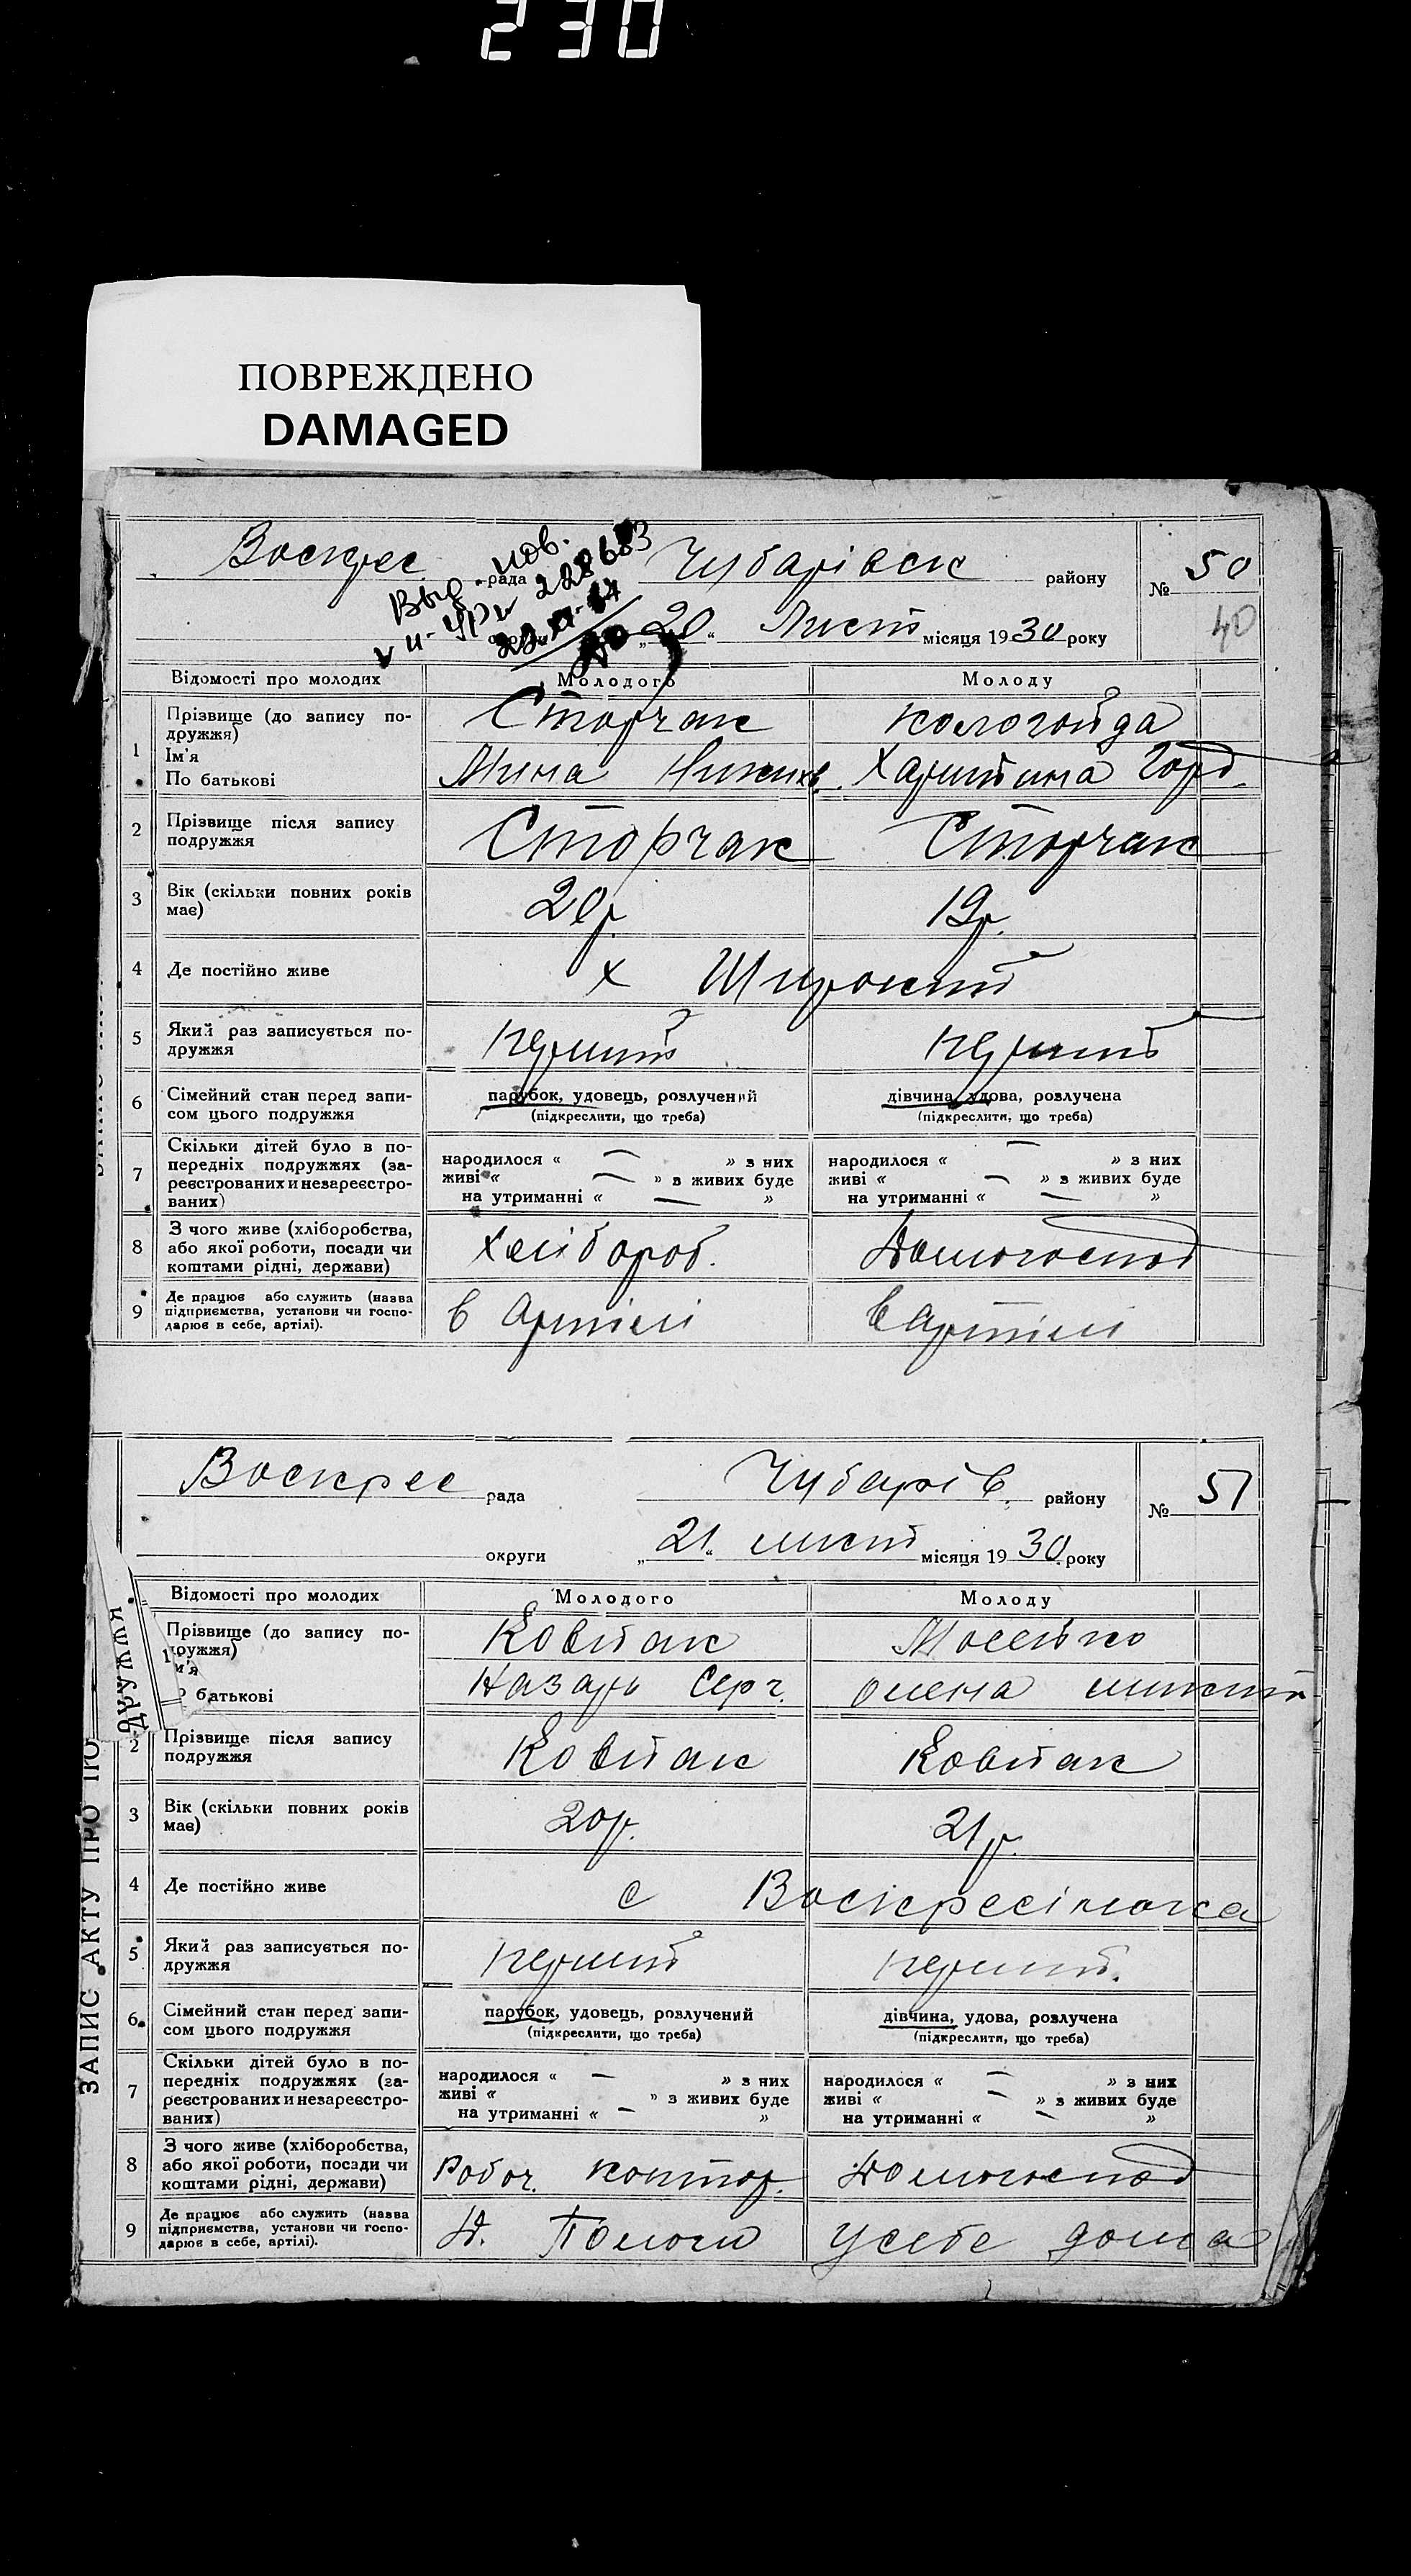 230
ПОВРЕЖДЕНО
DAMAGED
Воскрес рада Чубарівськ району № 50
Выд. пов.
228683
„20“ Лист місяця 1930 року 40
Відомості про молодих Молодого Молоду
1 Прізвище (до запису по-
дружжя) Сторчак Кологойда
Ім'я
По батькові Мина Никих. Харитина Горд.
2 Прізвище після запису
подружжя Сторчак Сторчак
3 Вік (скільки повних років
має) 20р. 19р.
4 Де постійно живе х Широкий
5 Який раз записується по-
дружжя перший перший
6 Сімейний стан перед запи-
сом цього подружжя парубок, удовець, розлучений дівчина, удова, розлучена
(підкреслити, що треба) (підкреслити, що треба)
7 Скільки дітей було в по-
передніх подружжях (за-
реєстрованих и незареєстро-
ваних) народилося « — » з них народилося « — » з них
живі « — » з живих буде живі « — » з живих буде
на утриманні « — » на утриманні « — »
8 З чого живе (хліборобства,
або якої роботи, посади чи
коштами рідні, держави) Хлібороб. Домогоспод
9 Де працює або служить (назва
підприємства, установи чи госпо-
дарює в себе, артілі). в Артілі в Артілі
Воскрес рада Чубарів. району № 51
округи „21“ лист місяця 1930 року
Відомості про молодих Молодого Молоду
Прізвище (до запису по-
дружжя) Ковпак Мосейко
м'я
батькові Назарь Серг. Олена
2 Прізвище після запису
подружжя Ковпак Ковпак
3 Вік (скільки повних років
має) 20р. 21р.
4 Де постійно живе с Воскресінка
5 Який раз записується по-
дружжя перший перший.
6 Сімейний стан перед запи-
сом цього подружжя парубок, удовець, розлучений дівчина, удова, розлучена
(підкреслити, що треба) (підкреслити, що треба)
7 Скільки дітей було в по-
передніх подружжях (за-
реєстрованих и незареєстро-
ваних) народилося « — » з них народилося « — » з них
живі « » з живих буде живі « — » з живих буде
на утриманні « — » на утриманні « — »
8 З чого живе (хліборобства,
або якої роботи, посади чи
коштами рідні, держави) Робоч. контор. Домогоспод
9 Де працює або служить (назва
підприємства, установи чи госпо-
дарює в себе, артілі). Д. Пологи усебе дома
ЗАПИС АКТУ ПРО ПО
ДРУЖЖЯ